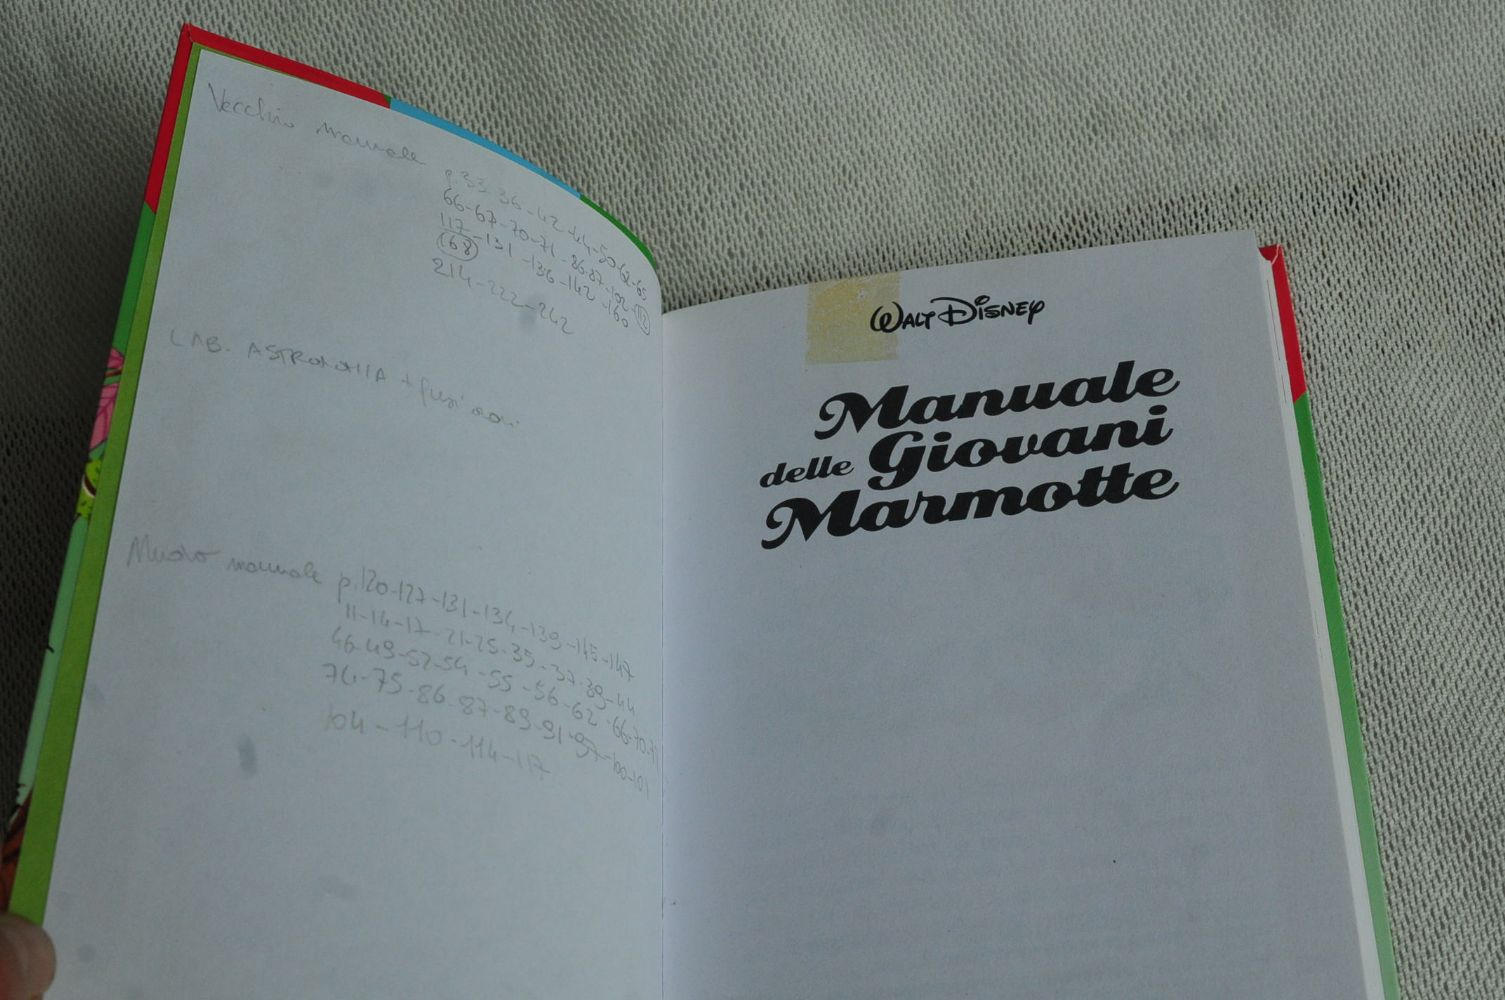 Vecchio manuale
p 33-36-42-44-50-62-65
66-67-70-71-86-87-102-112
117-131-136-142-160
(68)
214-222-242
LAB. ASTRONOMIA +
Nuovo manuale p.120-127-131-134-139-145-147
11-14-17-21-25-35-37-39-44
46-49-52-54-55-56-62-66-70-71
74-75-86-87-89-91-97-100-101
104-110-114-117
WALT DISNEY
Manuale
delle Giovani
Marmotte